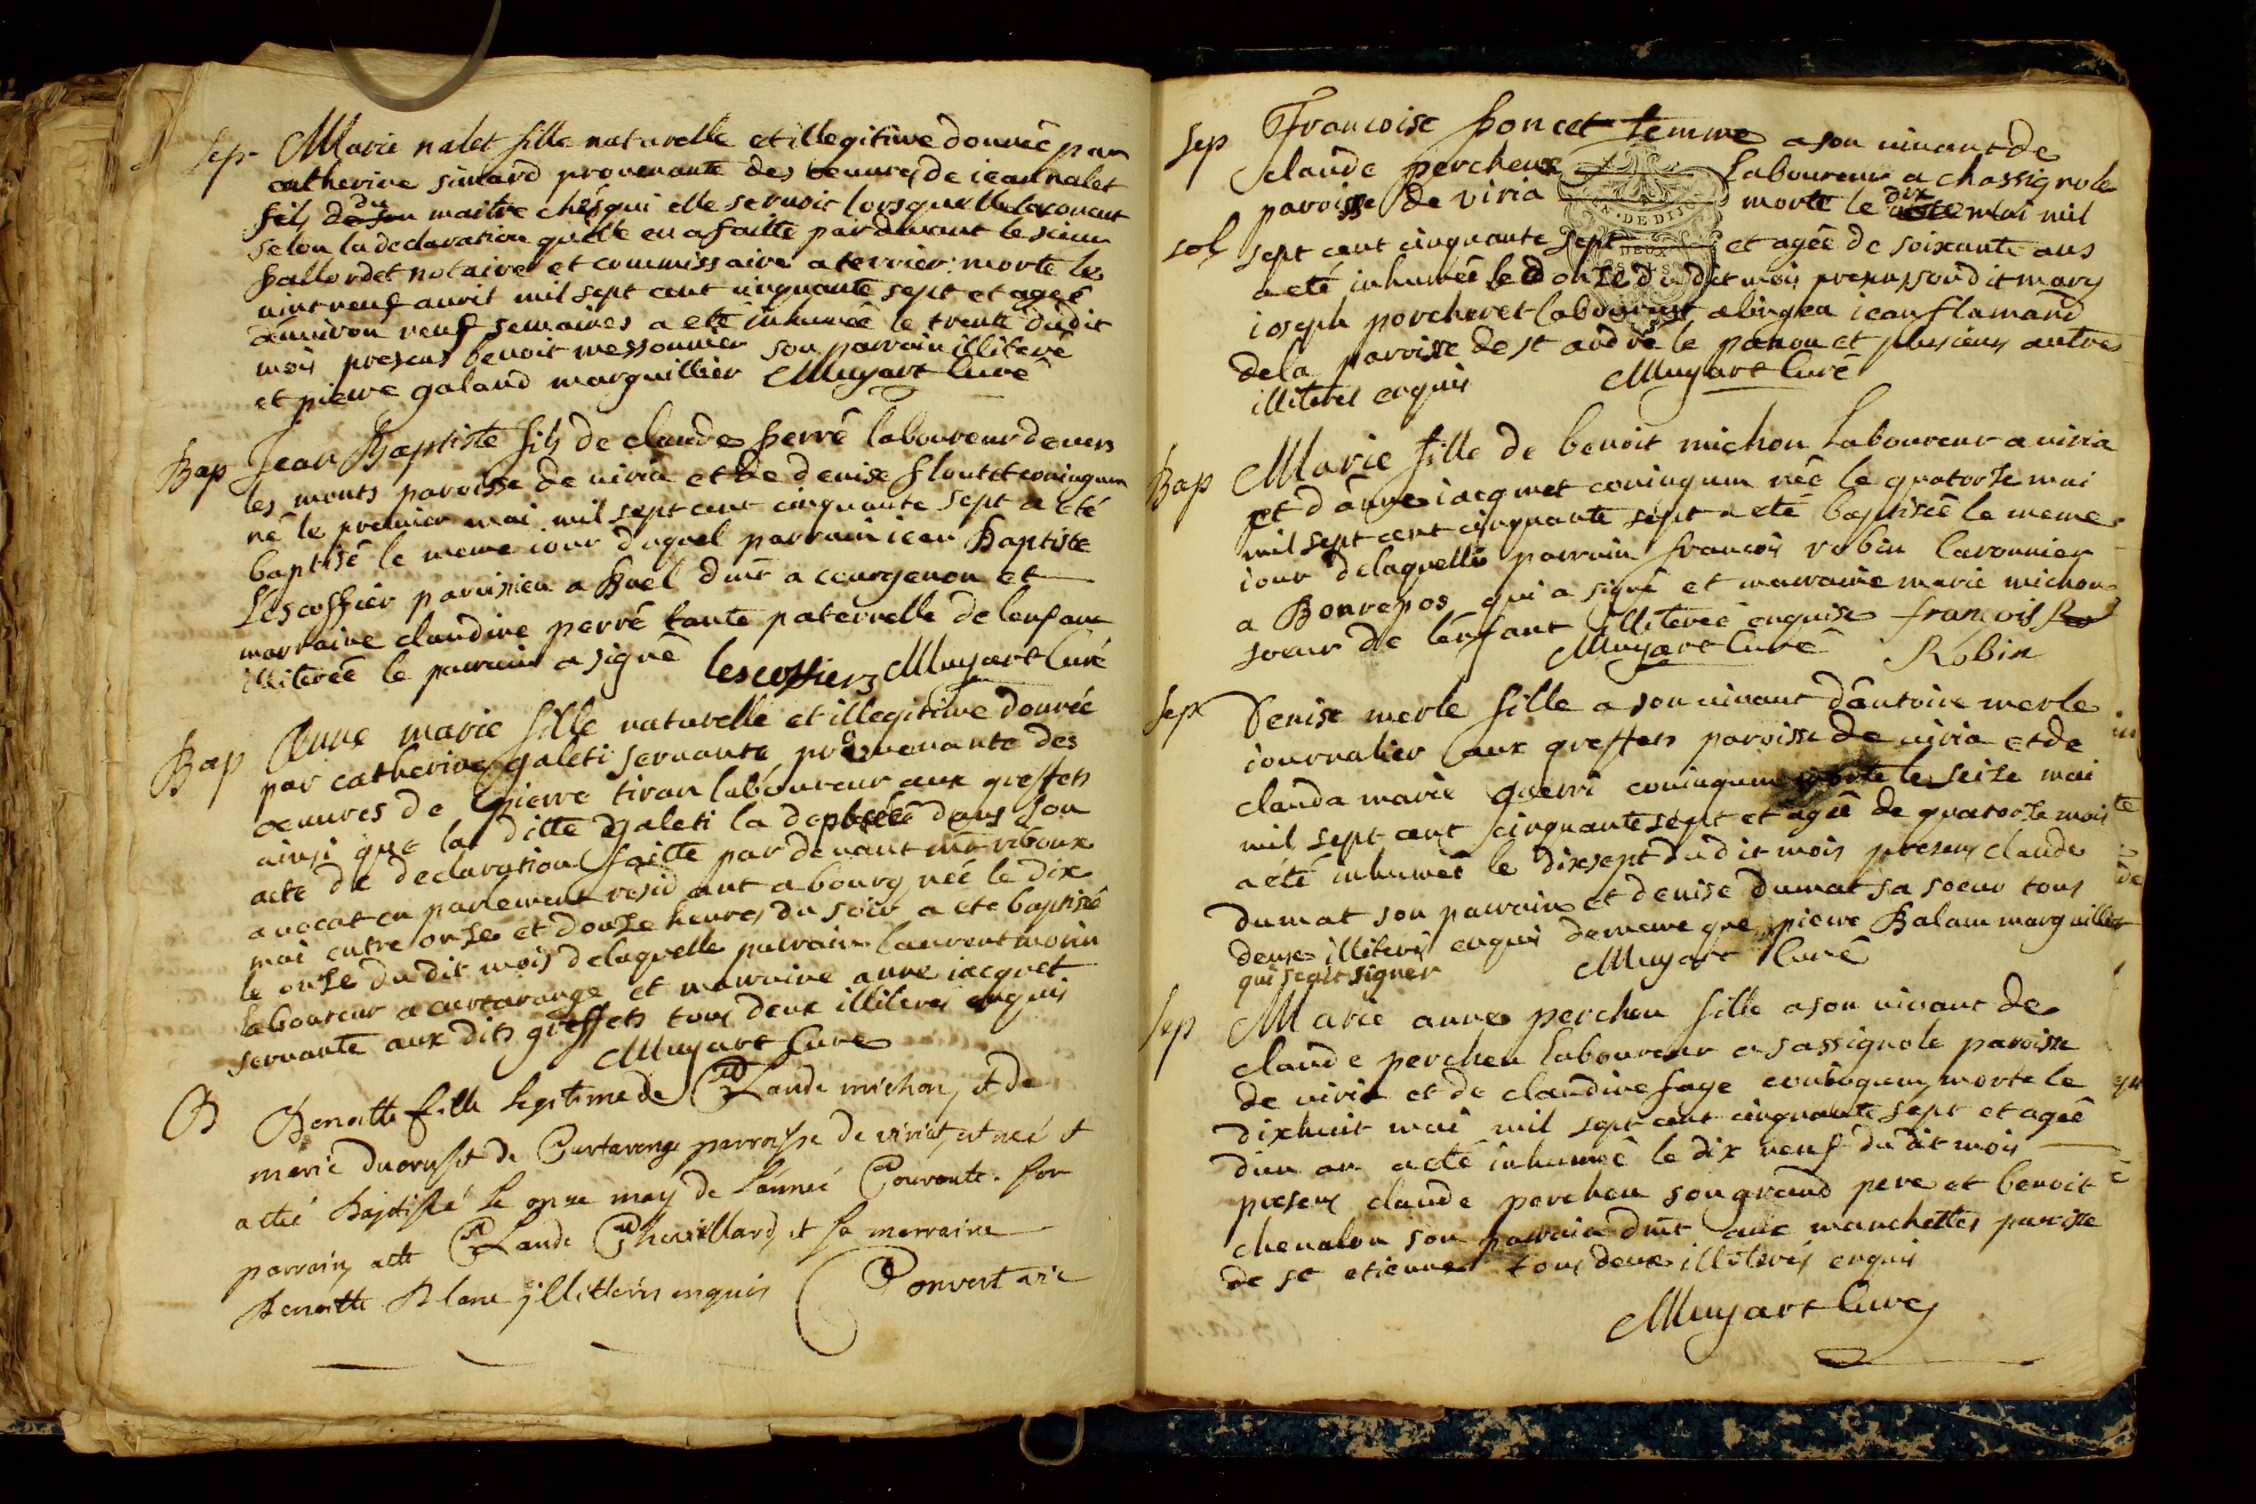 Sep Marie nalet fille naturelle et illegitime donnée par
catherine simard provenante des oeuvres de iean nalet
fils du maitre chés qui elle servoit lors
selon la declaration qu'elle en a faitte par devant le sieur
pallordet notaire et commissaire a terrier: morte le
vint neuf avril mil sept cent cinquante sept et ageé
denviron neuf semaines a eté inhumeé le trente dudit
mois presens benoit messonnier son parrain illiteré
et pierre galand marguillier Muyart Curé
Bap Jean Baptiste fils de claude perré laboureur de vers
les monts paroisse de viria et de denise floutet coniugum
né le premier mai mil sept cent cinquante sept a eté
baptisé le meme iour duquel parrain iean Baptiste
Lescoffier parroisien a Buel dmt a ceurgenon et
marraine claudine perré tante paternelle de lenfant
illitereé le parrain a signé Lescoffier Muyart Curé
Bap Anne marie fille naturelle et illegitime donneé
par catherine galeti servante provenante des
oeuvres de pierre tiran laboureur aux greffets
ainsi que la ditte galeti la deposeé dans son
acte de declaration faitte par devant me riboux
avocat en parlement residant a bourg neé le dix
mai entre onse et douse heures du soir a eté baptiseé
le onse dudit mois de laquelle parrain laurent morin
laboureur a curtarange et marraine anne iacquet
servante aux dits greffets tous deux illiterés enquis
Muyart Curé
B Benoitte fille legitime de Claude michon, et de
marie ducruset de Curtarenge parroisse de viriat, et neé et
a eteé Baptisée le onze may de l'anneé Courante. son
parrain, a eté Claude Chevillard, et sa marraine
Benoitte Blanc jllitterés enquis Convert vic
Sep Francoise poncet femme a son vivant de
claude percheux Laboureur a chassignole
paroisse de viria morte le dix mai mil
sol sept cent cinquante sept et ageé de soixante ans
a eté inhumeé le onse dudit mois presens son dit mary
ioseph porcheret laboureur a iean flamand
de la paroisse de st andré le panou et plusieurs autres
illiterés enquis Muyart Curé
Bap Marie fille de benoit michon Laboureur a viria
et d'anne iacquet coniugum neé le quatorse mai
mil sept cent cinquante sept a eté baptiseé le meme
iour de laquelle parrain francois robin
a Bonrepos qui a signé et marraine marie michon
soeur de lenfant illitereé enquise françois
Muyart Curé Robin
Sep Denise merle fille a son vivant d'antoine merle
iournalier aux greffets paroisse de viria et de
clauda marie guerri coniugum morte le seise mai
mil sept cent cinquante sept et ageé de quatorse mois
a eté inhumeé le dixsept dudit mois presens claude
dumat son parrain et denise dumat sa soeur tous
deux illiterés enquis de meme que pierre Balam marguillier
qui scait signer Muyart Curé
Sep Marie anne percheu fille a son vivant de
claude percheu laboureur a sassignole paroisse
de viria et de claudine faye coniugum morte le
dixhuit mai mil sept cent cinquante sept et ageé
d'un an a eté inhumeé le dix neuf dudit mois
presens claude percheu son grand pere et benoit
chevalon son parrain dmt aux manchettes paroisse
de st etienne tous deux illiterés enquis
Muyart Curé